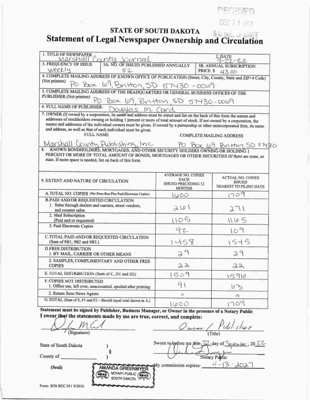 RECEIVED
STATE OF SOUTH DAKOTA
Statement of Legal Newspaper Ownership and Circulation
1. TITLE OF NEWSPAPER
Marshall County Journal
2. DATE
9-22-22
3. FREQUENCY OF ISSUE
weekly
3A. NO. OF ISSUES PUBLISHED ANNUALLY
52
3B. ANNUAL SUBSCRIPTION
PRICE $ 43.00
4. COMPLETE MAILING ADDRESS OF KNOWN OFFICE OF PUBLICATION (Street, City, County, State and ZIP+4 Code)
(Not printers)
PO Box 69, Britton, SD 57430-0069
5. COMPLETE MAILING ADDRESS OF THE HEADQUARTERS OR GENERAL BUSINESS OFFICES OF THE
PUBLISHER (Not printer)
PO Box 69, Britton SD 57430-0069
6. FULL NAME OF PUBLISHER:
Douglas M. Card
7. OWNER (If owned by a corporation, its name and address must be stated and list on the back of this form the names and
addresses of stockholders owning or holding 1 percent or more of total amount of stock. If not owned by a corporation, the
names and addresses of the individual owners must be given. If owned by a partnership or other unincorporated firm, its name
and address, as well as that of each individual must be given.
FULL NAME
COMPLETE MAILING ADDRESS
Marshall County Publishing, Inc.
PO Box 69, Britton, SD 57430
8. KNOWN BONDHOLDERS, MORTGAGES, AND OTHER SECURITY HOLDERS OWNING OR HOLDING 1
PERCENT OR MORE OF TOTAL AMOUNT OF BONDS, MORTGAGES OR OTHER SECURITIES (If there are none, so
state. If more space is needed, list on back of this form.
9. EXTENT AND NATURE OF CIRCULATION
AVERAGE NO. COPIES
EACH
ISSUED PRECEDING 12
MONTHS
ACTUAL NO. COPIES
ISSUED
NEAREST TO FILING DATE
A. TOTAL NO. COPIES (Net Press Run Plus Paid Electronic Copies)
1600
1709
B. PAID AND/OR REQUESTED CIRCULATION
1. Sales through dealers and carriers, street vendors
and counter sales.
261
271
2. Mail Subscription
(Paid and or requested)
1105
1165
3. Paid Electronic Copies
92
109
C. TOTAL PAID AND/OR REQUESTED CIRCULATION
(Sum of 9B1, 9B2 and 9B3.)
1458
1545
D. FREE DISTRIBUTION
1. BY MAIL, CARRIER OR OTHER MEANS
29
29
2. SAMPLES, COMPLIMENTARY AND OTHER FREE
COPIES
22
22
E. TOTAL DISTRIBUTION (Sum of C, D1 and D2)
1509
1596
F. COPIES NOT DISTRIBUTED
1. Office use, left over, unaccounted, spoiled after printing
91
113
2. Return from News Agents
0
0
G. TOTAL (Sum of E, F1 and F2 - Should equal total shown in A.)
1600
1709
Statement must be signed by Publisher, Business Manager, or Owner in the presence of a Notary Public
I swear that the statements made by me are true, correct, and complete:
Owner / Publisher
(Signature)
(Title)
State of South Dakota )
Sworn to before me this 22 day of September, 2022
County of )
Notary Public
(Seal)
AMANDA GREENMYER
NOTARY PUBLIC
SOUTH DAKOTA
My commission expires: 4-13-2027
Form: SOS REC 051 9/2016